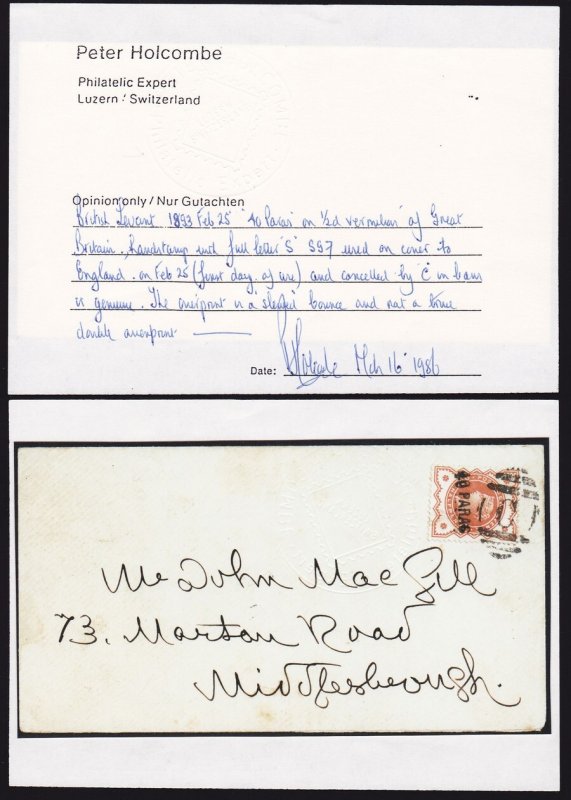 Peter Holcombe
Philatelic Expert
Luzern / Switzerland
Opinion only / Nur Gutachten
British Levant 1893 Feb 25 "40 Paras" on ½d vermilion of Great
Britain, handstamp with full letter "S" SG7 used on cover to
England on Feb 25 (first day of use) and cancelled by "C" in bars
is genuine. The overprint is a bounce and not a true
double overprint
Date: Mch 16 1986
40 PARAS
Mr John Mac Gill
73. Marton Road
Middlesborough.